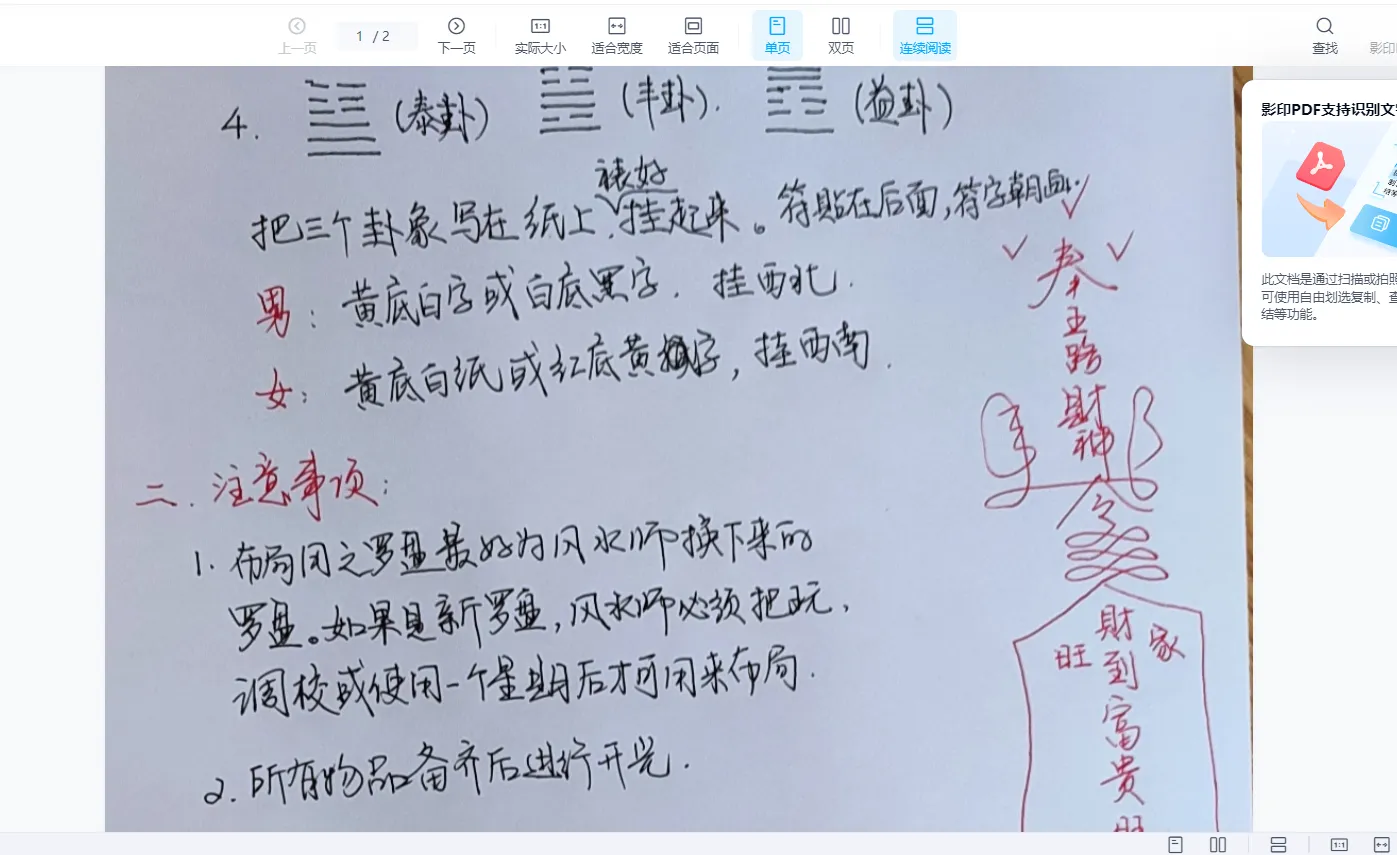 上一页
1 / 2
下一页
实际大小
适合宽度
适合页面
单页
双页
连续阅读
查找
影印
影印PDF支持识别文字
此文档是通过扫描或拍照
可使用自由划选复制、查
结等功能。
4. (泰卦) (丰卦). (益卦)
裱好
把三个卦象写在纸上,挂起来。符贴在后面,符字朝画.
男: 黄底白字或白底黑字. 挂西北.
女: 黄底白纸或红底黄字, 挂西南.
二. 注意事项:
1. 布局用之罗盘最好为风水师换下来的
罗盘。如果是新罗盘,风水师必须把玩,
调校或使用一个星期后才可用来布局.
2. 所有物品备齐后进行开光.
奉
五
路
財
神
令
財
到
富
貴
旺
旺
家